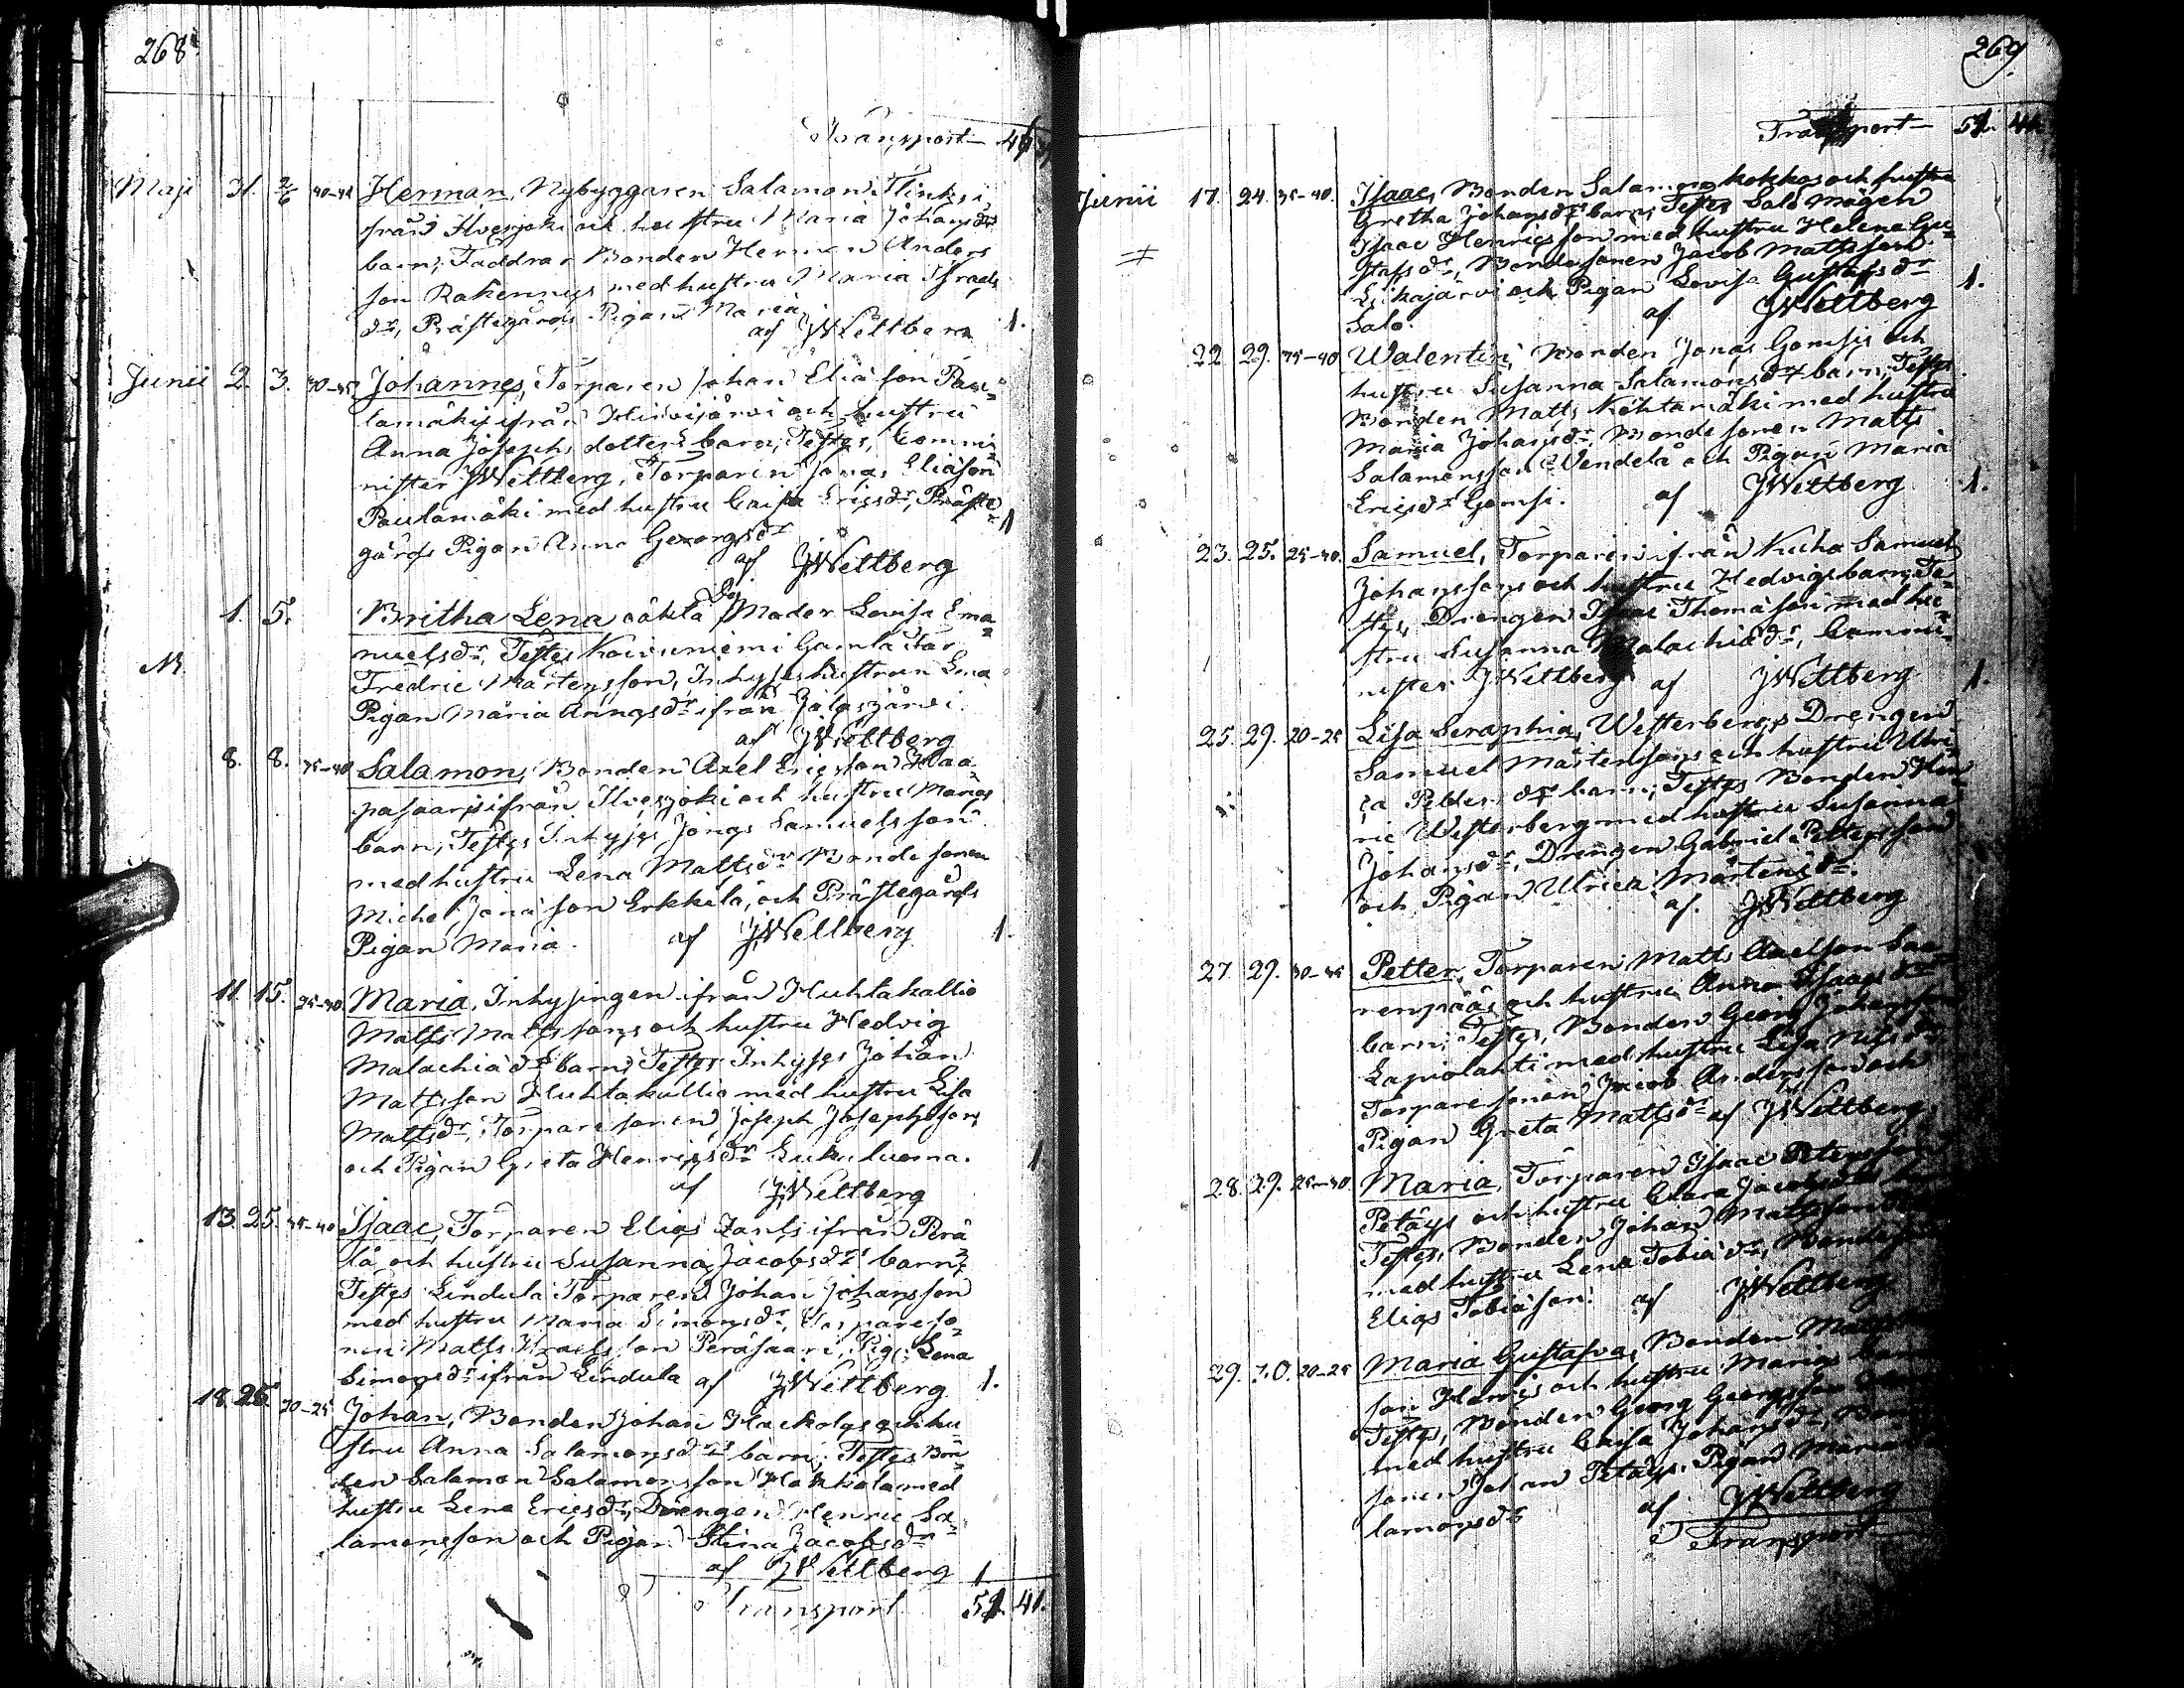 268
Transport
Maji 31. 2/6 40-42 Herman, Nybyggaren Salamon Flinks i
från Ilvesjoki och hustru Maria Johansdrs
barn; Faddrar Bonden Herman Anders
son Rakennus med hustru Maria Israels
dr, Prästegårds Pigan Maria
af JWettberg 1.
Junii 2. 3. 30-35 Johannes, Torparen Johan Eliäson Pau=
lamäkis ifrån Hirvijärvi och hustru
Anna Josephs dotters barn; Testes, Commi=
nister JWettberg, Torparen Jonas Eliäson
Paulamäki med hustru Caisa Ericsdr, Präste=
gårds Pigan Anna Georgsdr 1
af JWettberg
1. 5. Britha Lena oäkta Moder Lovisa Ema=
nuelsdr, Testes Koivuniemi Gamla Far
Fredric Mårtensson, Inhyses hustrun Lena
Pigan Maria Annasdr ifrån Jalasjärvi.
af JWettberg
8. 8. 35-40 Salamon, Bonden Axel Ericsson Haa=
pasaaris ifrån Ilvesjoki och hustru Marias
barn; Testes Inhyses Jonas Samuelsson
med hustru Lena Mattsdr Bondesonen
Michel Jonäson Erkkilä, och Prästegårds
Pigan Maria. af JWettberg 1.
11. 15. 25-30 Maria, Inhysingen ifrån Huhtakallio
Matts Mattssons och hustru Hedvig
Malachiädrs barn; Testes Inhyses Johan
Mattsson Huhtakallio med hustru Lisa
Mattsdr, Torparesonen Joseph Josephsson
och Pigan Greta Henricsdr Lukuluoma. 1
af JWettberg
13. 25. 35-40 Isaac, Torparen Elias Zants ifrån Perä
lä och hustru Susanna Jacobsdrs barn;
Testes Lindula Torparen Johan Johansson
med hustru Maria Simonsdr, Torpareso=
nen Matts Israelsson Peräsaari, Pig: Lena
Simonsdr ifrån Lindula af JWettberg 1.
18. 25. 20-25 Johan, Bonden Johan Hackolas och hu=
stru Anna Salamonsdrs barn; Testes Bon=
den Salamon Salamonsson Hakkola med
hustru Lena Ericsdr, Drengen Henric Sa=
lamonsson och Pigan Stina Jacobsdr
af JWettberg 1
Transport 51. 41.
269
Transport 51. 41.
Junii 17. 24. 35-40. Isaac, Bonden Salamon Kokkos och hustru
Gretha Johansdrs barn; Testes Salo mågen
Isaac Henricsson med hustru Helena Gu=
stafsdr, Bondesonen Jacob Mattsson
Likajärvi och Pigan Lovisa Gustafsdr
Salo. af JWettberg 1.
22. 29. 35-40 Walentin, Bonden Jonas Gomsis och
hustru Susanna Salamonsdrs barn; Testes
Bonden Matts Kohtamäki med hustru
Maria Johansdr, Bondesonen Matts
Salamonsson Wendelä och Pigan Maria
Ericsdr Gomsi. af JWettberg 1.
23. 25. 25-30. Samuel, Torparen ifrån Kuha Samuel
Johanssons och hustru Hedvigs barn; Te=
stes, Drengen Isaac Thomäson med hu
stru Susanna Malachiädr, Commi=
nister JWettberg af JWettberg 1.
25. 29. 20-25 Lisa Seraphia, Westerbergs Drengen
Samuel Mårtensons och hustru Ulri=
ca Petters drs barn; Testes Bonden Hen
ric Westerberg med hustru Susanna
Johansdr, Drengen Gabriel Pettersson
och Pigan Ulrica Mårtensdr.
af. JWettberg
27. 29. 30-35 Petter, Torparen Matts Axelson Saa
renpääs och hustru Anna Isaacsdrs
barn; Testes, Bonden Georg Johansson
Lapiolahti med hustru Lisa Nilsdr
Torparesonen Jacob Andersson och
Pigan Greta Mattsdr af JWettberg
28. 29. 25-30. Maria, Torparen Isaac Petersson
Petäys och hustru Clara Jacobsdrs
Testes, Bonden Johan Mattsson
med hustru Lena Tobiädr, Bondeson
Elias Tobiäson. af JWettberg
29. 30. 20-25 Maria Gustafva, Bonden Matts
son Harris och hustru Marias barn
Testes, Bonden Georg Georgsson
med hustru Caisa Johansdr, Bonde
sonen Johan Petäys, Pigan Maria Sa
lamonsdr af JWettberg
Transport